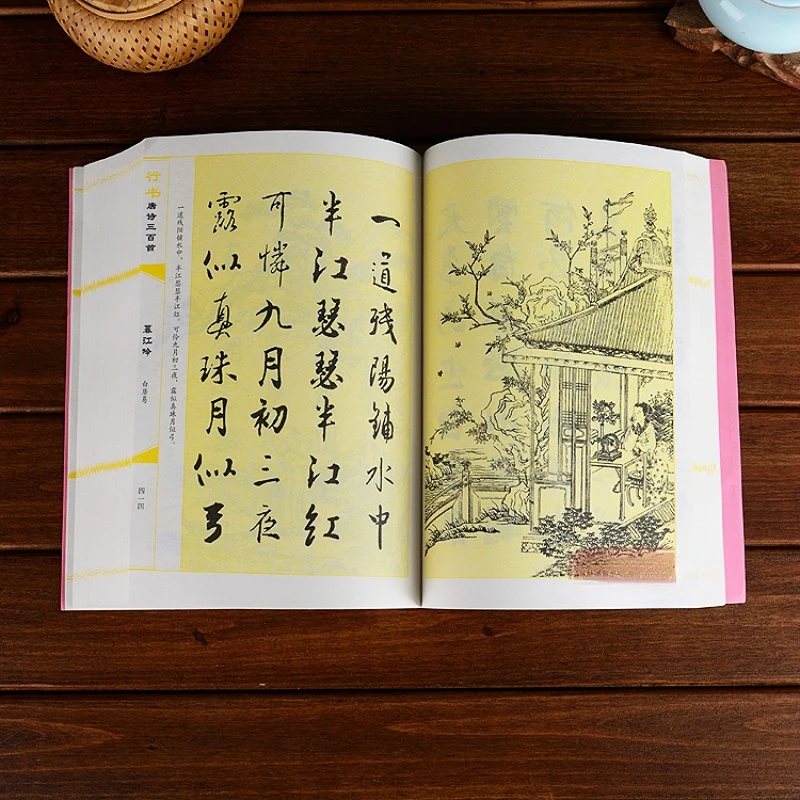 一道残陽鋪水中
半江瑟瑟半江紅
可憐九月初三夜
露似真珠月似弓
一道残阳铺水中，半江瑟瑟半江红。可怜九月初三夜，露似真珠月似弓。
行书唐诗三百首
暮江吟
白居易
四一四